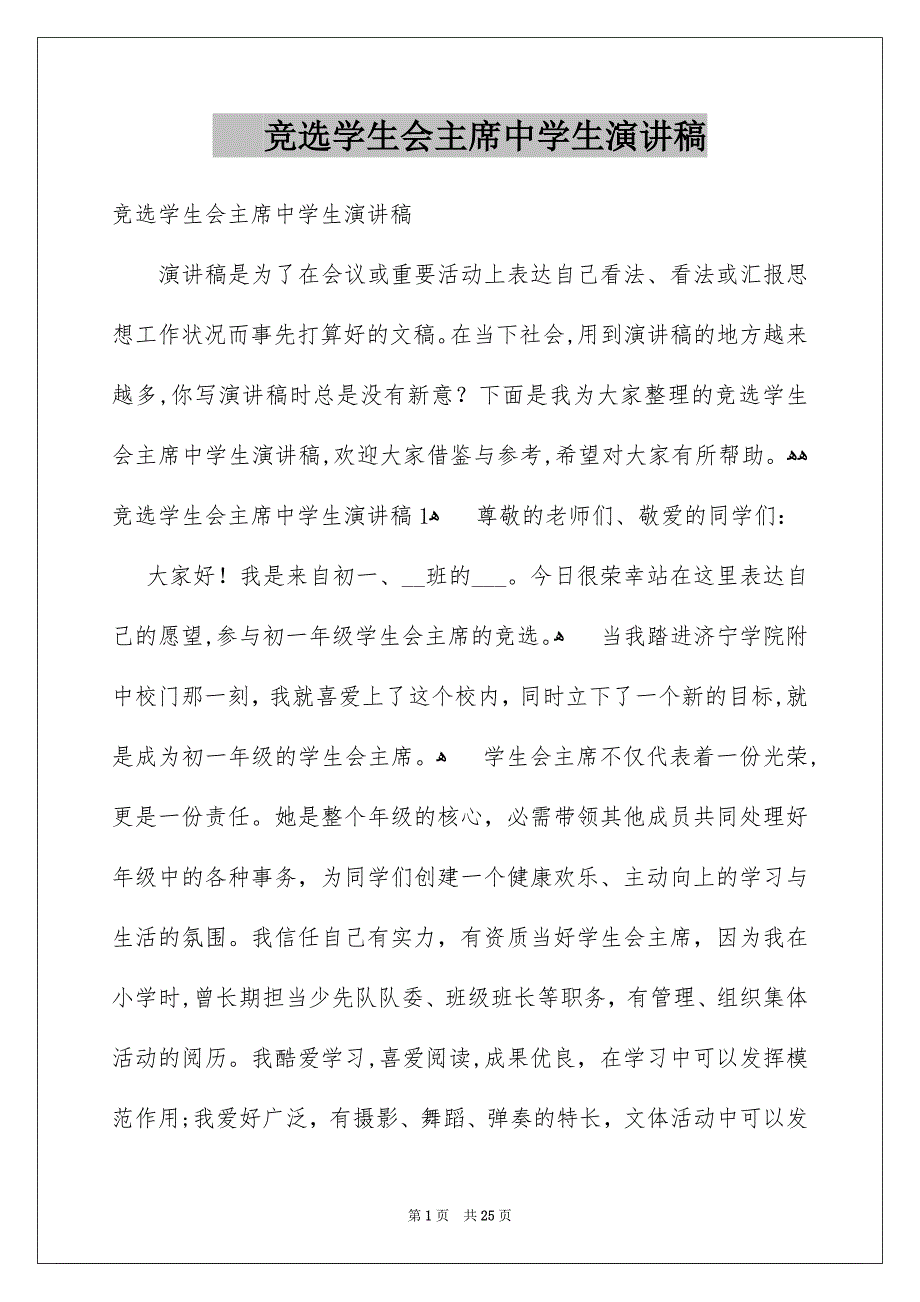 竞选学生会主席中学生演讲稿
竞选学生会主席中学生演讲稿
演讲稿是为了在会议或重要活动上表达自己看法、看法或汇报思
想工作状况而事先打算好的文稿。在当下社会,用到演讲稿的地方越来
越多,你写演讲稿时总是没有新意？下面是我为大家整理的竞选学生
会主席中学生演讲稿,欢迎大家借鉴与参考,希望对大家有所帮助。ﻫﻫ
竞选学生会主席中学生演讲稿1ﻫ 尊敬的老师们、敬爱的同学们：
大家好！我是来自初一、__班的___。今日很荣幸站在这里表达自
己的愿望,参与初一年级学生会主席的竞选。ﻫ 当我踏进济宁学院附
中校门那一刻，我就喜爱上了这个校内，同时立下了一个新的目标,就
是成为初一年级的学生会主席。ﻫ 学生会主席不仅代表着一份光荣,
更是一份责任。她是整个年级的核心，必需带领其他成员共同处理好
年级中的各种事务，为同学们创建一个健康欢乐、主动向上的学习与
生活的氛围。我信任自己有实力，有资质当好学生会主席，因为我在
小学时,曾长期担当少先队队委、班级班长等职务，有管理、组织集体
活动的阅历。我酷爱学习,喜爱阅读,成果优良，在学习中可以发挥模
范作用;我爱好广泛，有摄影、舞蹈、弹奏的特长，文体活动中可以发
第 1 页 共 25 页